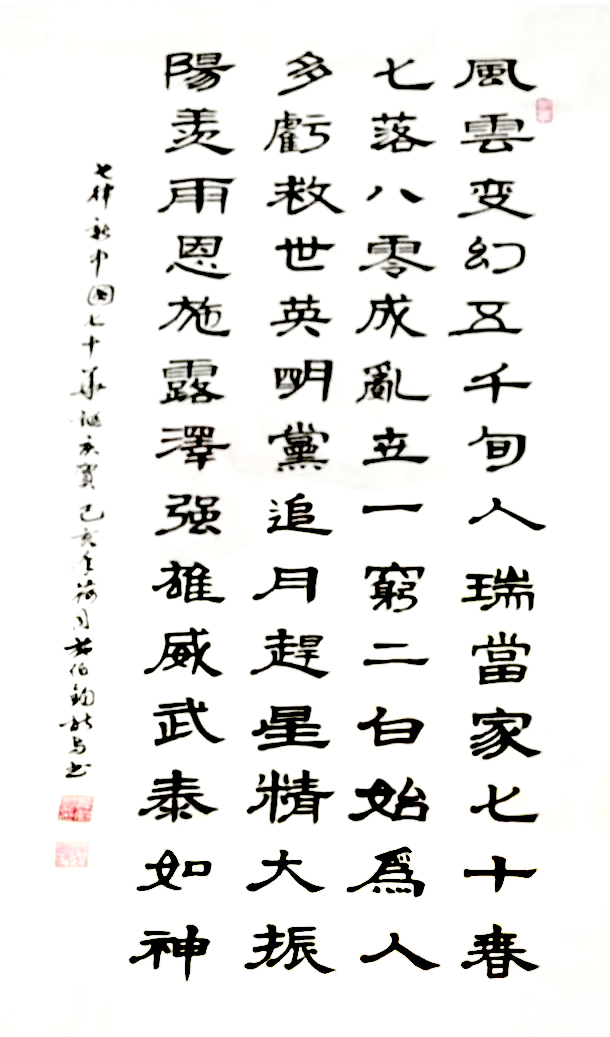 風雲变幻五千旬人瑞當家七十春
七落八零成亂世一窮二白始爲人
多虧救世英明黨追月趕星精大振
陽羨雨恩施露澤强雄威武泰如神
七律新中國七十華誕慶賀己亥年荷月伯鈞書